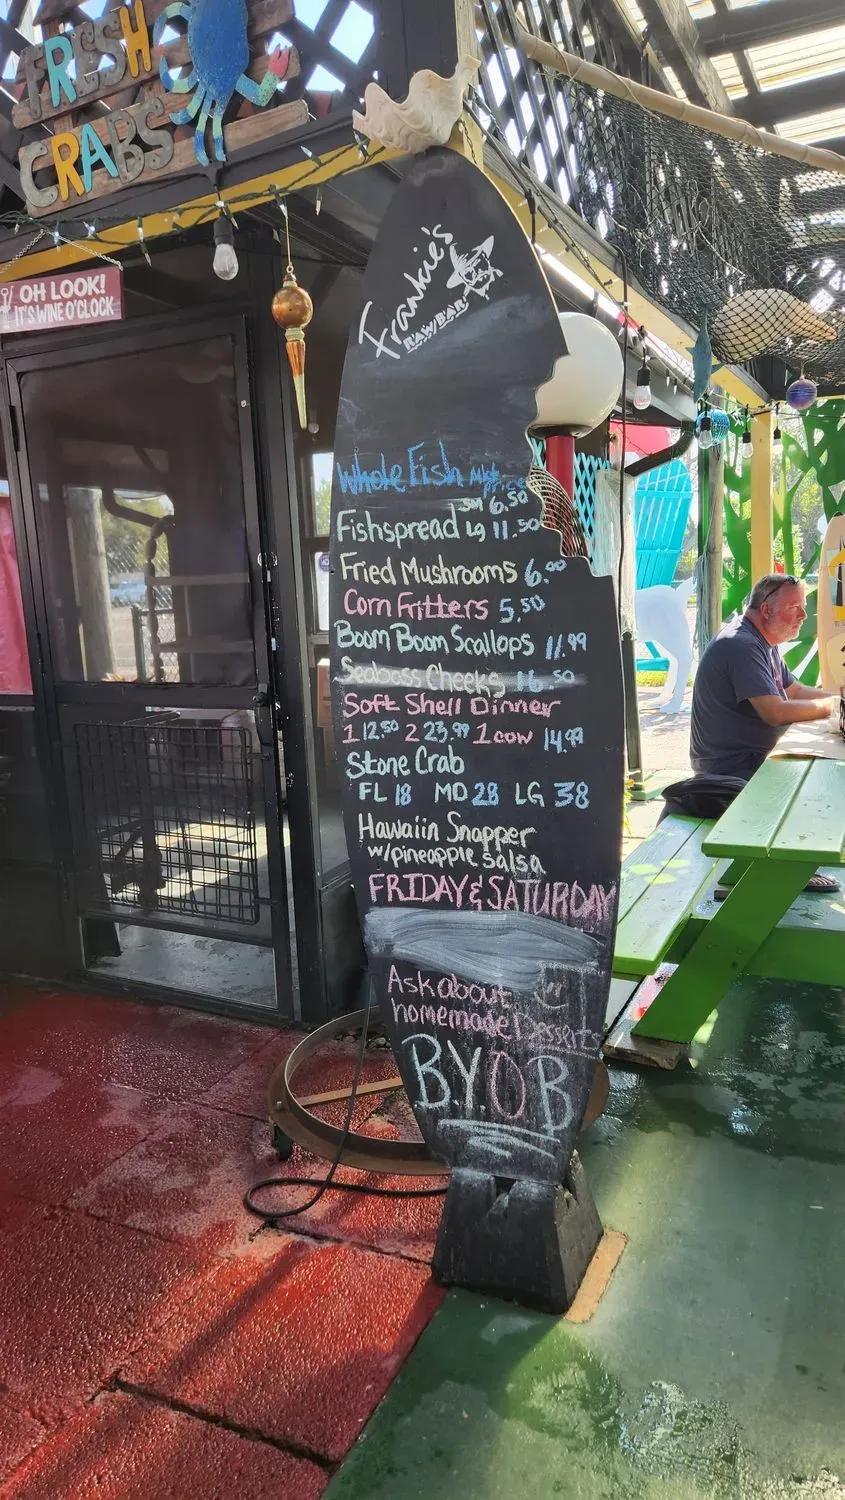 FRESH
CRABS
OH LOOK!
IT'S WINE O'CLOCK
Frankie's
RAW BAR
Whole Fish Mkt price
Fishspread SM 6.50
LG 11.50
Fried Mushrooms 6.00
Corn Fritters 5.50
Boom Boom Scallops 11.99
Seabass Cheeks 16.50
Soft Shell Dinner
1 12.50 2 23.99 1 cow 14.99
Stone Crab
FL 18 MD 28 LG 38
Hawaiin Snapper
w/pineapple salsa
FRIDAY & SATURDAY
Ask about
homemade Desserts
B.Y.O.B